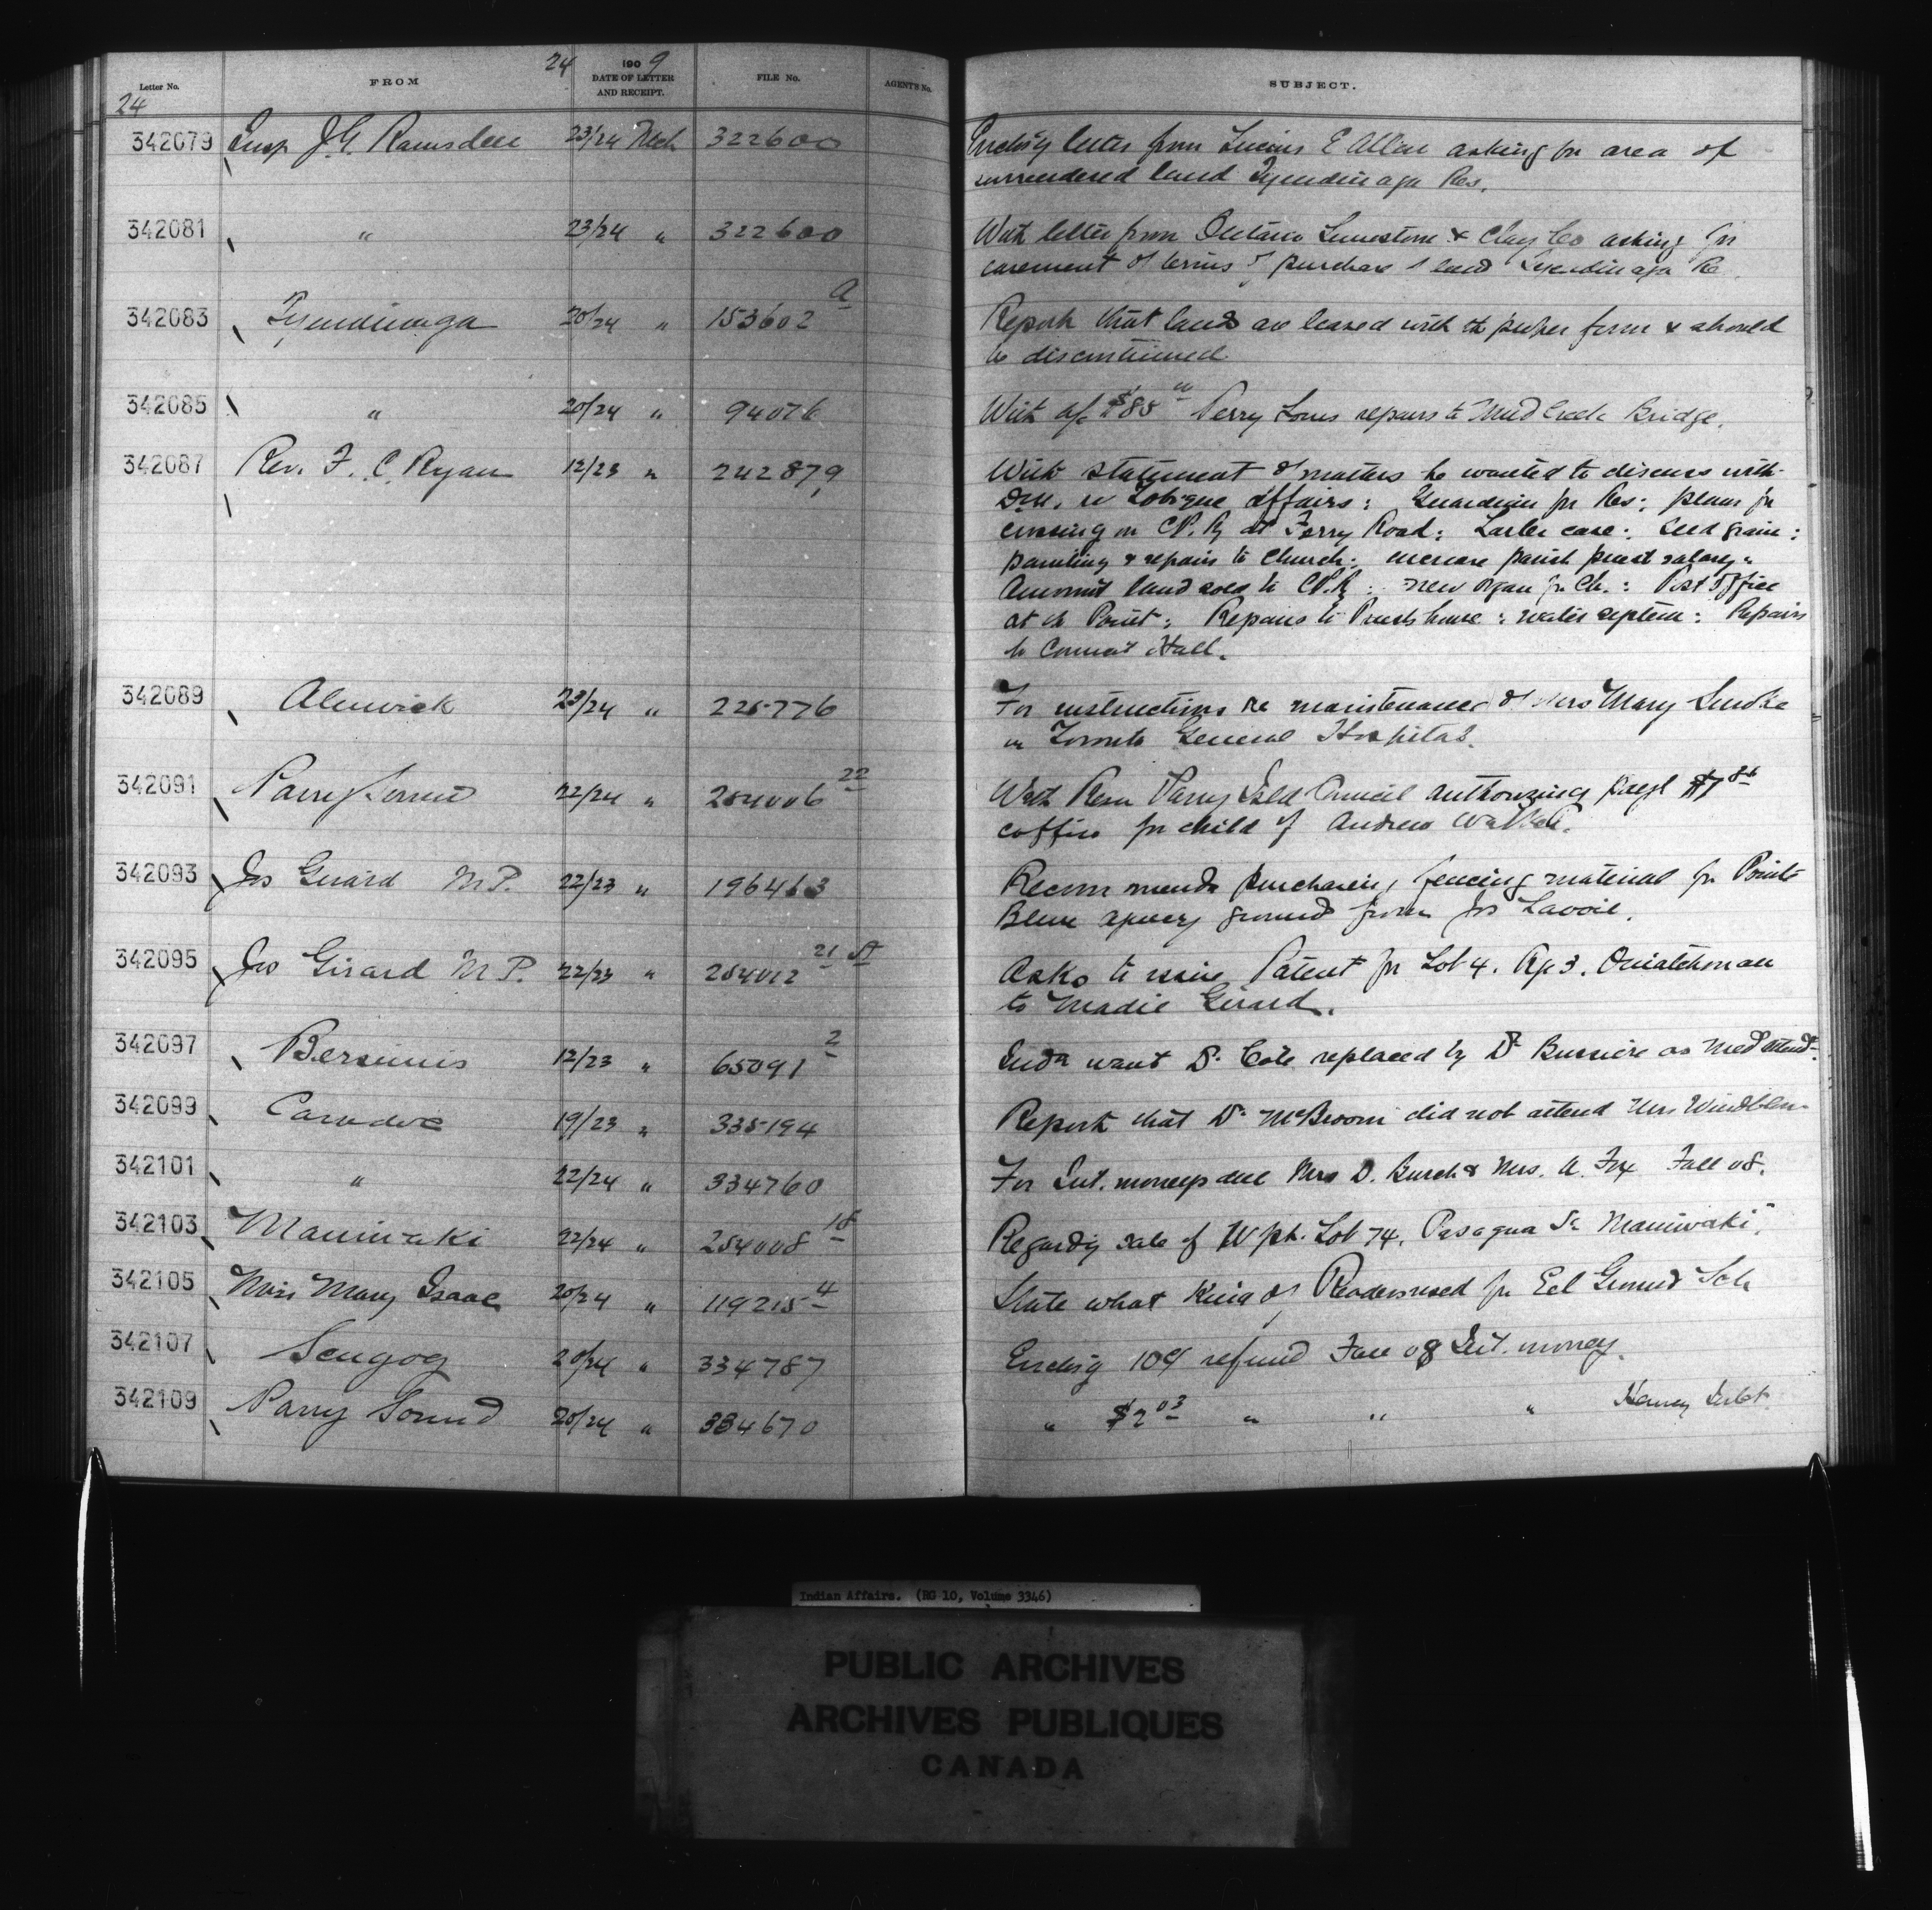 24 1909
Letter No. FROM DATE OF LETTER AND RECEIPT. FILE No. AGENT'S No. SUBJECT.
24
342079 Insp J.G. Ramsden 23/24 Mch 322600 Encls'g letter from Lucius E Allen asking for area of
surrendered land Tyendinaga Res.
342081 " 23/24 " 322600 With letter from Ontario Limestone & Clay Co asking for
of terms of purchase land Tyendinaga Re
342083 Tyendinaga 20/24 " 153602 A Reports that lands are leased with the proper form & should
be discontinued
342085 " 20/24 " 94076 With a/c $85 Perry Loues repairs to Mud Creek Bridge.
342087 Rev. F. C. Ryan 12/23 " 242879 With statement of matters he wanted to discuss with
re Tobique affairs: Guardian for Res: plans for
crossing on C.P.R. at Ferry Road: Larlee case: Seed grain:
painting & repairs to Church: increase parish priest salary:
Amount land sold to C.P.R: new organ for Ch.: Post Office
at the Point: Repairs to Priests house: water system: Repairs
to Council Hall.
342089 Alnwick 23/24 " 225776 For instructions re maintenance of Mrs Mary
in Toronto General Hospital.
342091 Parry Sound 22/24 " 254006 22 With Resn Parry Isld Council authorizing paygt $7
coffin for child of Andrew Walker.
342093 Jos Girard M.P. 22/23 " 196463 Recommends purchasing fencing material for Pointe
Bleue agency grounds from Jos Lavoie.
342095 Jos Girard M.P. 22/23 " 254012 21 St Asks to issue Patent for Lot 4. Rg 3. Ouiatchouan
to Madie Girard.
342097 Bersimis 12/23 " 65091 2 Inds want Dr Cote replaced by Dr Bussiere as Med attendt.
342099 Caradoc 19/23 " 335194 Reports that Dr McBroom did not attend Mrs
342101 " 22/24 " 334760 For Int. moneys due Mrs D. Burch & Mrs. A. Fox Fall 08.
342103 Maniwaki 22/24 " 254008 18 Regardg sale of W pt. Lot 74, Pasagua St Maniwaki.
342105 Miss Mary Isaac 20/24 " 119215 4 State what kind of Readers used for Eel Ground Sch
342107 Scugog 20/24 " 334787 Enclsg 10¢ refund Fall 08 Int. money.
342109 Parry Sound 20/24 " 334670 " $2 03 " " "
Indian Affairs. (RG 10, Volume 3346)
PUBLIC ARCHIVES
ARCHIVES PUBLIQUES
CANADA